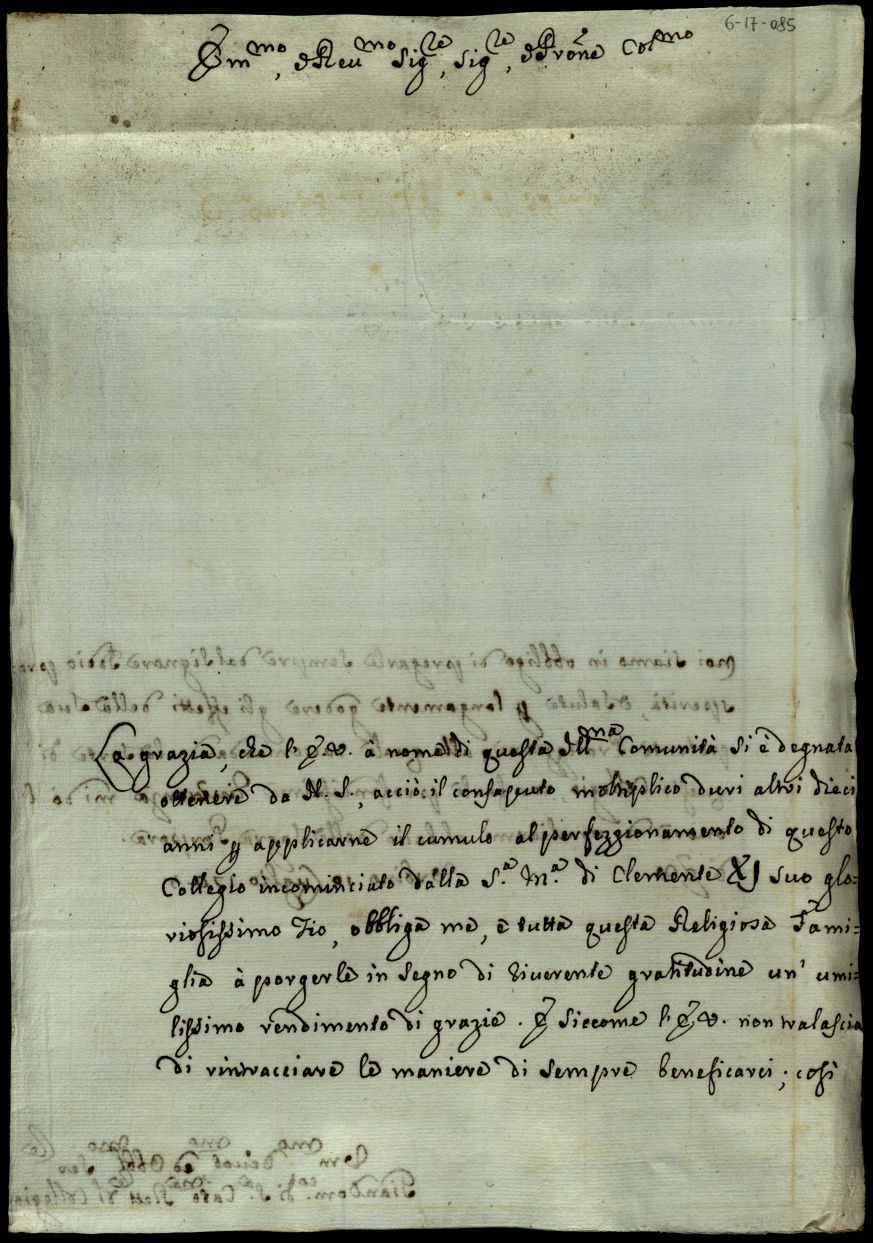 6-17-085
Em.mo, e Reu.mo Sig.re, Sig.re, e Prone Col.mo
La grazia, che l'E.V. à nome di questa Ill.ma Comunità si è degnata
ottenere da N. S., acciò il consaputo moltiplico duri altri dieci
anni p applicarne il cumulo al perfezzionamento di questo
Collegio incominciato dalla S.a M.a di Clemente XI suo glo=
riosissimo Zio, obbliga me, e tutta questa Religiosa Fami=
glia à porgerle in segno di riuerente gratitudine un' umi=
lissimo rendimento di grazie. E siccome l'E.V. non tralascia
di rintracciare le maniere di sempre beneficarci; così